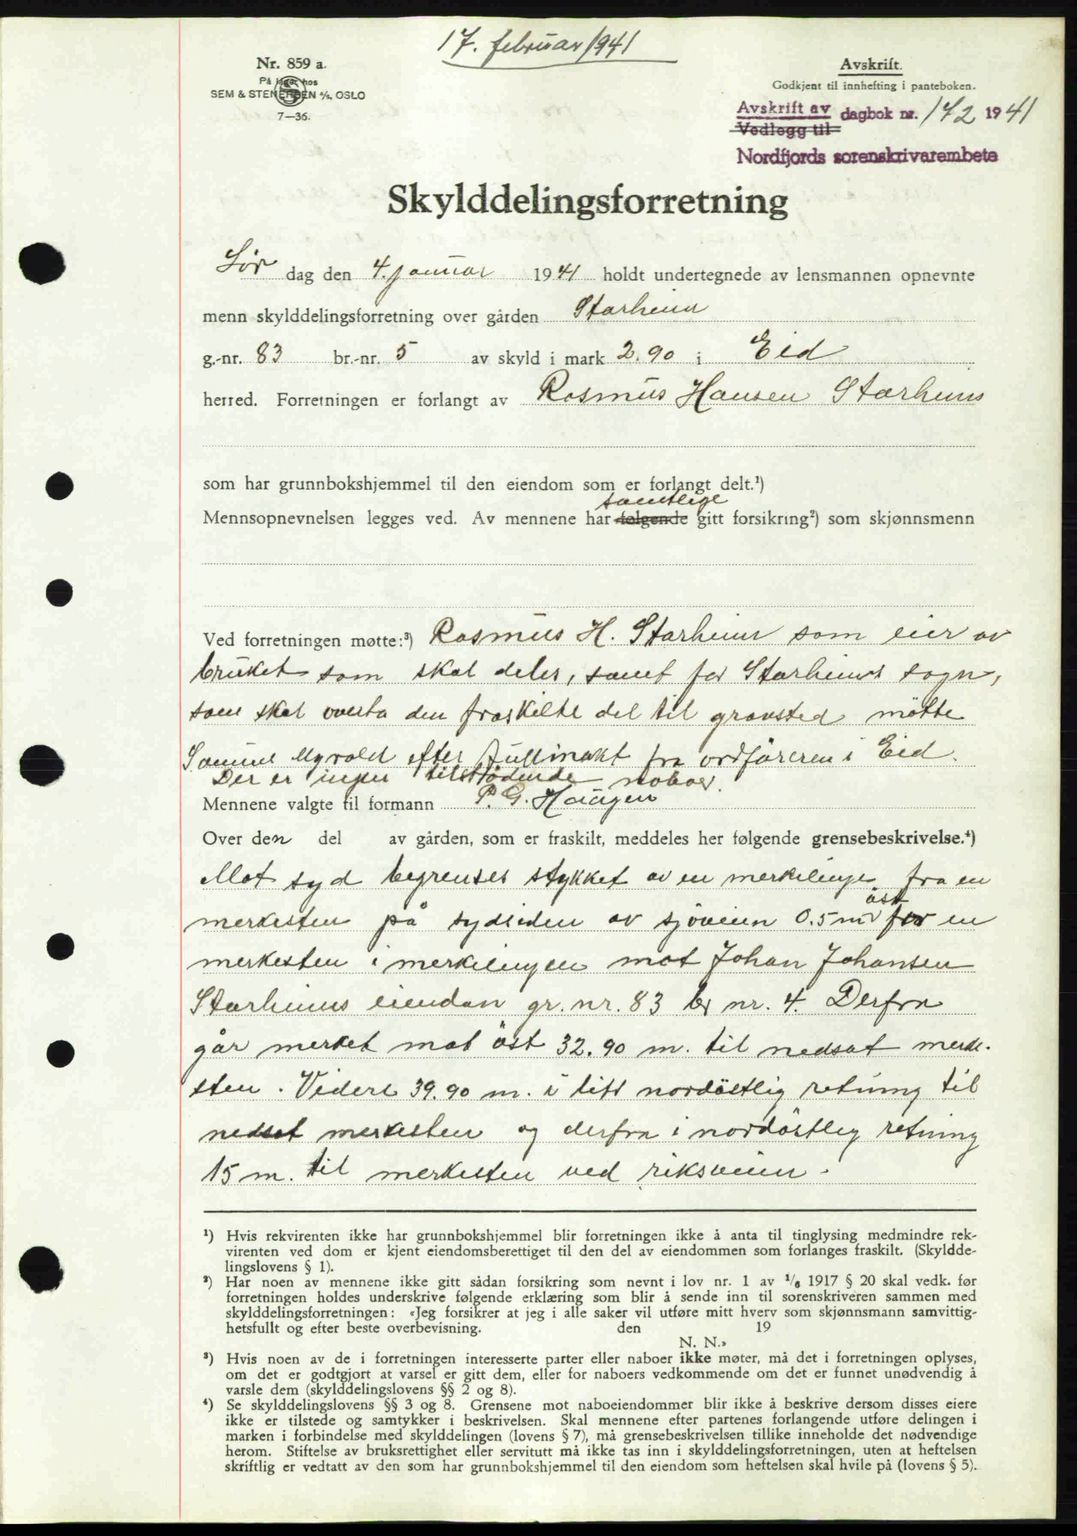 17. februar 1941
Nr. 859 a.
På lager hos
SEM & STENERSEN A/S, OSLO
7—36.
Avskrift.
Godkjent til innhefting i panteboken.
Avskrift av
Vedlegg til
dagbok nr. 172 1941
Nordfjords sorenskrivarembete
Skylddelingsforretning
Lør dag den 4. januar 1941 holdt undertegnede av lensmannen opnevnte
menn skylddelingsforretning over gården Starheim
g.-nr. 83 br.-nr. 5 av skyld i mark 2.90 i Eid
herred. Forretningen er forlangt av Rasmus Hansen Starheim
som har grunnbokshjemmel til den eiendom som er forlangt delt.¹)
samtlige
Mennsopnevnelsen legges ved. Av mennene har følgende gitt forsikring²) som skjønnsmenn
Ved forretningen møtte:³) Rasmus H. Starheim som eier av
bruket som skal deles, samt for Starheims sogn,
som skal overta den fraskilte del til gravsted møtte
Samuel Myrold efter fullmakt fra ordføreren i Eid.
Der er ingen tilstødende naboer.
Mennene valgte til formann P. G. Haugen
Over den del av gården, som er fraskilt, meddeles her følgende grensebeskrivelse.⁴)
Mot syd begrenses stykket av en merkelinje fra en
merkesten på sydsiden av sjøveien 0.5 m øst for en
merkesten i merkelinjen mot Johan Johansen
Starheims eiendom gr. nr. 83 br nr. 4. Derfra
går merket mot øst 32.90 m. til nedsat merke-
sten. Videre 39.90 m. i litt nordøstlig retning til
nedsat merkesten og derfra i nordøstlig retning
15 m. til merkesten ved riksveien.
¹) Hvis rekvirenten ikke har grunnbokshjemmel blir forretningen ikke å anta til tinglysing medmindre rek-
virenten ved dom er kjent eiendomsberettiget til den del av eiendommen som forlanges fraskilt. (Skyldde-
lingslovens § 1).
²) Har noen av mennene ikke gitt sådan forsikring som nevnt i lov nr. 1 av ¹/₆ 1917 § 20 skal vedk. før
forretningen holdes underskrive følgende erklæring som blir å sende inn til sorenskriveren sammen med
skylddelingsforretningen: «Jeg forsikrer at jeg i alle saker vil utføre mitt hverv som skjønnsmann samvittig-
hetsfullt og efter beste overbevisning. den 19
N. N.»
³) Hvis noen av de i forretningen interesserte parter eller naboer ikke møter, må det i forretningen oplyses,
om det er godtgjort at varsel er gitt dem, eller for naboers vedkommende om det er funnet unødvendig å
varsle dem (skylddelingslovens §§ 2 og 8).
⁴) Se skylddelingslovens §§ 3 og 8. Grensene mot naboeiendommer blir ikke å beskrive dersom disses eiere
ikke er tilstede og samtykker i beskrivelsen. Skal mennene efter partenes forlangende utføre delingen i
marken i forbindelse med skylddelingen (lovens § 7), må grensebeskrivelsen tillike inneholde det nødvendige
herom. Stiftelse av bruksrettighet eller servitutt må ikke tas inn i skylddelingsforretningen, uten at heftelsen
skriftlig er vedtatt av den som har grunnbokshjemmel til den eiendom som heftelsen skal hvile på (lovens § 5).